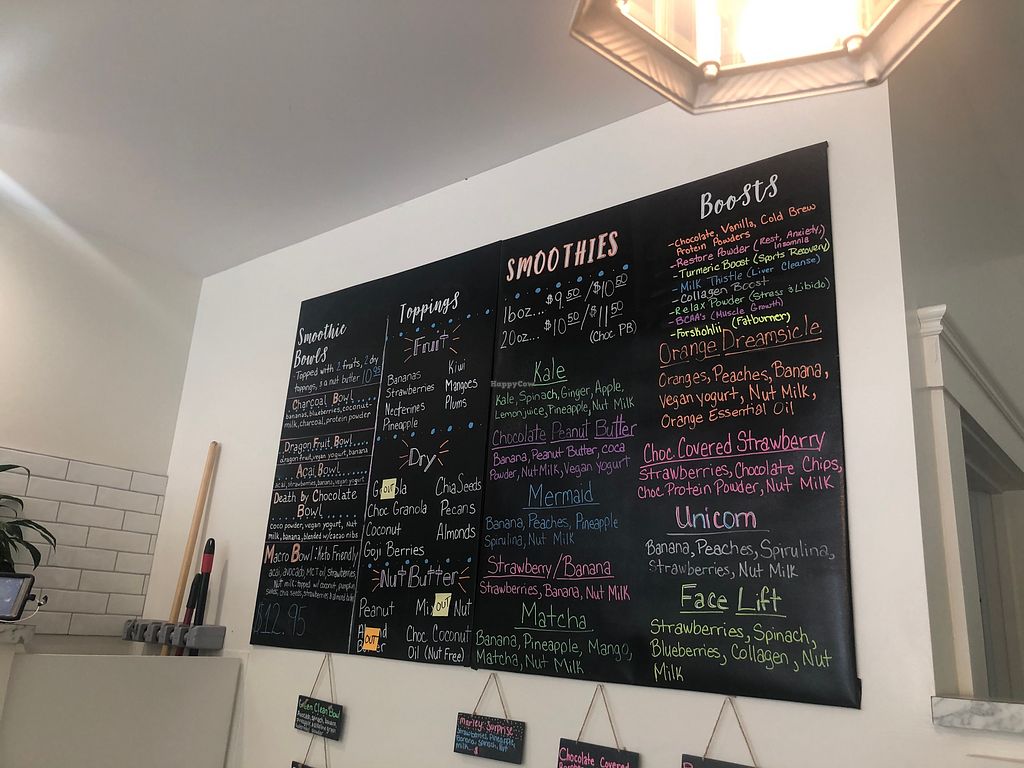 Smoothie
Bowls
Topped with 2 fruits, 2 dry
toppings, & a nut butter 10.95
Charcoal Bowl
bananas, blueberries, coconut
milk, charcoal, protein powder
Dragon Fruit Bowl
dragon fruit, vegan yogurt, banana
Acai Bowl
acai, strawberries, banana, vegan yogurt
Death by Chocolate
Bowl
coco powder, vegan yogurt, nut
milk, banana, blended w/cacao nibs
Macro Bowl: Keto Friendly
acai, avocado, MCT oil, strawberries,
Nut milk. topped w/ coconut, pumpkin
seeds, chia seeds, strawberries & almond butter
$12.95
Toppings
Fruit
Bananas
Strawberries
Necterines
Pineapple
Kiwi
Mangoes
Plums
Dry
OUT
Choc Granola
Coconut
Goji Berries
Chia Seeds
Pecans
Almonds
Nut Butter
Peanut
OUT
Nut
OUT
Choc Coconut
Oil (Nut Free)
SMOOTHIES
16oz... $9.50 / $10.50
20oz... $10.50 / $11.50
(Choc PB)
Kale
Kale, Spinach, Ginger, Apple,
Lemonjuice, Pineapple, Nut Milk
Chocolate Peanut Butter
Banana, Peanut Butter, coca
Powder, Nut Milk, Vegan yogurt
Mermaid
Banana, Peaches, Pineapple
Spirulina, Nut Milk
Strawberry/Banana
Strawberries, Banana, Nut Milk
Matcha
Banana, Pineapple, Mango,
Matcha, Nut Milk
Boosts
-Chocolate, Vanilla, Cold Brew
Protein Powders
-Restore Powder (Rest, Anxiety,
Insomnia)
-Turmeric Boost (Sports Recovery)
-Milk Thistle (Liver Cleanse)
-Collagen Boost
-Relax Powder (Stress & Libido)
-BCAA's (Muscle Growth)
-Forskohlii (Fatburner)
Orange Dreamsicle
Oranges, Peaches, Banana,
Vegan yogurt, Nut Milk,
Orange Essential Oil
Choc Covered Strawberry
Strawberries, Chocolate Chips,
Choc Protein Powder, Nut Milk
Unicorn
Banana, Peaches, Spirulina,
Strawberries, Nut Milk
Face Lift
Strawberries, Spinach,
Blueberries, Collagen, Nut
Milk
Green Clean Bowl
Marley Surprise
Strawberries, Pineapple,
Banana, Spinach, Nut
Milk
Chocolate Covered
HappyCow